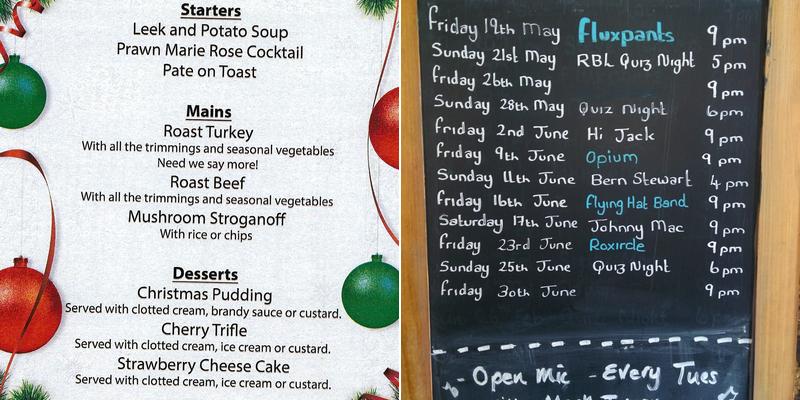 Starters
Leek and Potato Soup
Prawn Marie Rose Cocktail
Pate on Toast
Mains
Roast Turkey
With all the trimmings and seasonal vegetables
Need we say more!
Roast Beef
With all the trimmings and seasonal vegetables
Mushroom Stroganoff
With rice or chips
Desserts
Christmas Pudding
Served with clotted cream, brandy sauce or custard.
Cherry Trifle
Served with clotted cream, ice cream or custard.
Strawberry Cheese Cake
Served with clotted cream, ice cream or custard.
Friday 19th May Fluxpants 9pm
Sunday 21st May RBL Quiz Night 5pm
Friday 26th May 9pm
Sunday 28th May Quiz Night 6pm
Friday 2nd June Hi Jack 9pm
Friday 9th June Opium 9pm
Sunday 11th June Bern Stewart 4pm
Friday 16th June Flying Hat Band 9pm
Saturday 17th June Johnny Mac 9pm
Friday 23rd June Roxircle 9pm
Sunday 25th June Quiz Night 6pm
Friday 30th June 9pm
Open Mic - Every Tues